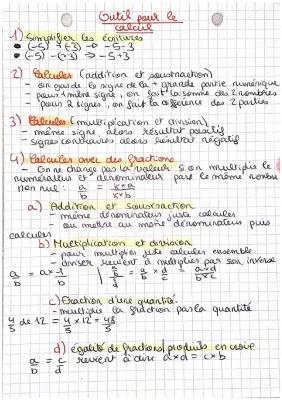 Outil pour le
calcul
1) Simplifier les écritures
• (-5) + (-3) → -5-3
• (-5) - (-3) → -5+3
2) Calculer (addition et soustraction)
- on garde le signe de la + grande partie numérique
- pour 1 même signe, on fait la somme des 2 nombres
- pour 2 signes, on fait la différence des 2 parties
3) Calculer (multiplication et division)
- même signe, alors résultat positif
- signes contraires alors résultat négatif
4) Calculer avec des fractions
- On ne change pas la valeur si on multiplie le
numérateur et dénominateur par le même nombre
non nul : a/b = k×a/k×b
a) Addition et soustraction
- même dénominateur juste calculer
- ou mettre au même dénominateur puis
calculer
b) Multiplication et division
- pour multiplier juste calculer ensemble
- diviser revient à multiplier par son inverse
a/b = a×1/b | a/b/c/d = a/b × d/c = a×d/b×c
c) Fraction d'une quantité
- multiplie la fraction par la quantité
4/5 de 12 = 4/5 × 12 = 48/5
d) égalité de fractions/produits en croix
a/b = c/d revient à dire a×d = c×b